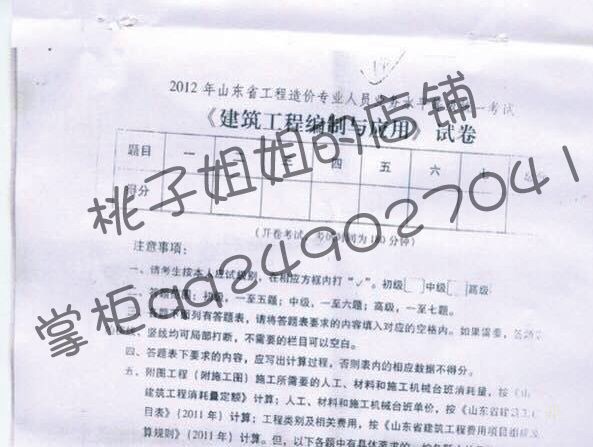 2012年山东省工程造价专业人员业务水平统一考试
《建筑工程编制与应用》试卷
题目 一 三 四 五 六 七
得分
(开卷考试 考试时间为180分钟)
注意事项:
一、请考生按本人应试级别,在相应方框内打“✓”。初级□中级□高级
二、答题范围:初级,一至五题;中级,一至六题;高级,一至七题。
三、答题下面列有答题表,请将答题表要求的内容填入对应的空格内。如果需要,答题
竖线均可局部打断,不需要的栏目可以空白。
四、答题表下要求的内容,应写出计算过程,否则表内的相应数据不得分。
五、附图工程(附施工图)施工所需要的人工、材料和施工机械台班消耗量,按《山
建筑工程消耗量定额》计算;人工、材料和施工机械台班单价,按《山东省建
目表》(2011年)计算;工程类别及相关费用,按《山东省建筑工程费用项目组成及
算规则》(2011年)计算。但,以下各题中有具体要求的,
桃子姐姐的店铺
掌柜qq249027041